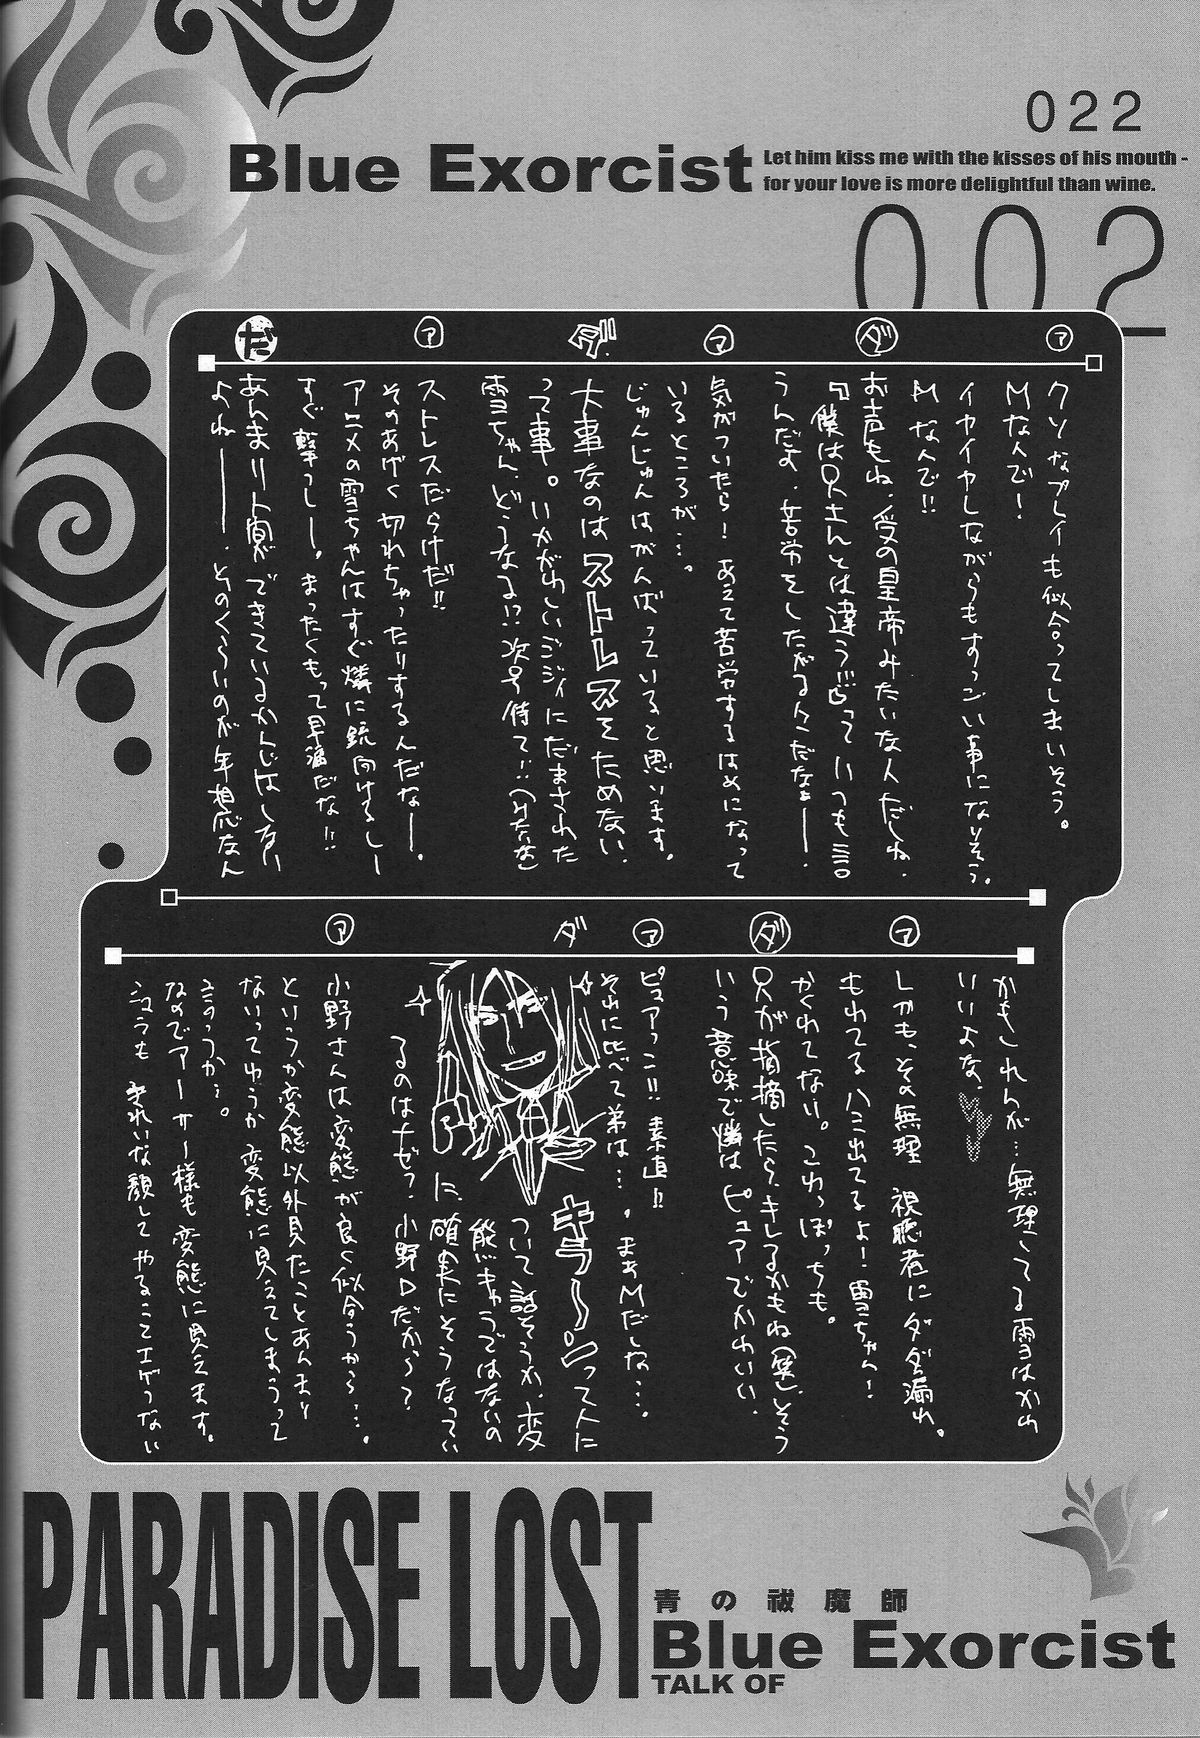 022
Blue Exorcist
Let him kiss me with the kisses of his mouth -
for your love is more delightful than wine.
002
ア
クソなプレイも似合ってしまいそう。
Mなんで!
イヤイヤしながらもすっごい事になりそう。
Mなんで!!
ダ
お声もね、受の皇帝みたいな人だしね、
『僕は兄さんとは違う!!!』って いつも言
うんだよ、苦労をしたがる人だなぁー。
ア
気がついたら! あえて苦労するはめになって
いるところが…。
じゅんじゅんはがんばっていると思います。
ダ
大事なのはストレスをためない、
って事。いかがわしいジジイにだまされた
雪ちゃん、どうなる!? 次号待て!!
ア
ストレスだらけだ!!
そのあげく切れちゃったりするんだなー。
アニメの雪ちゃんはすぐ燐に銃向けるしー
すぐ撃つしー。まったくもって早漏だな!!
だ
あんまり人間ができているかんじはしない
よねー――、そのくらいのが年相応なん
かもしれんが…無理してる雪はかわ
いいよな、
ア
しかも、その無理 視聴者にダダ漏れ。
もれてるハミ出てるよ!雪ちゃん!
かくれてない。これっぽっちも。
ダ
兄が指摘したら、キレるかもね(笑)、そう
いう意味で燐はピュアでかわいい、
ア
ピュアっこ!! 素直!!
それに比べて弟は…。まぁMだしな…。
ダ
キラーンって人に
ついて話そうか、変
態キャラではないの
に、確実にそうなってい
るのはナゼ?小野Dだから?
ア
小野さんは変態が良く似合うから…。
というか変態以外見たことあんまり
ないってゆうか変態に見えてしまうって
ゆうか…。
なのでアーサー様も変態に見えます。
シュラも きれいな顔して やること エゲつない
PARADISE LOST
青の祓魔師
Blue Exorcist
TALK OF